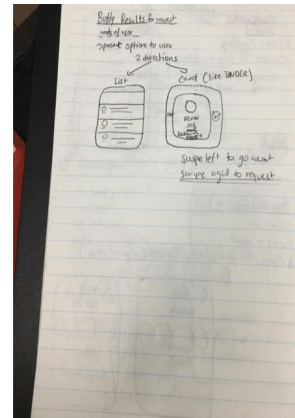 Buddy Results for request
needs of user
→ present options to user
2 directions
List
Card (like TINDER)
KEVIN
JOB
swipe left to go next
swipe right to request